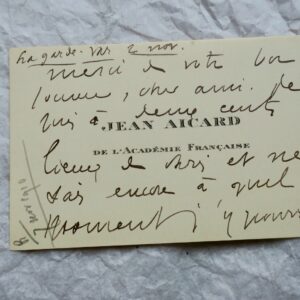 La garde. Var 2 nov.
merci de votre bon
cher ami. Je
suis à deux cents
JEAN AICARD
DE L'ACADÉMIE FRANÇAISE
lieues de Paris et ne
sais encore à quel
moment j'y pourr